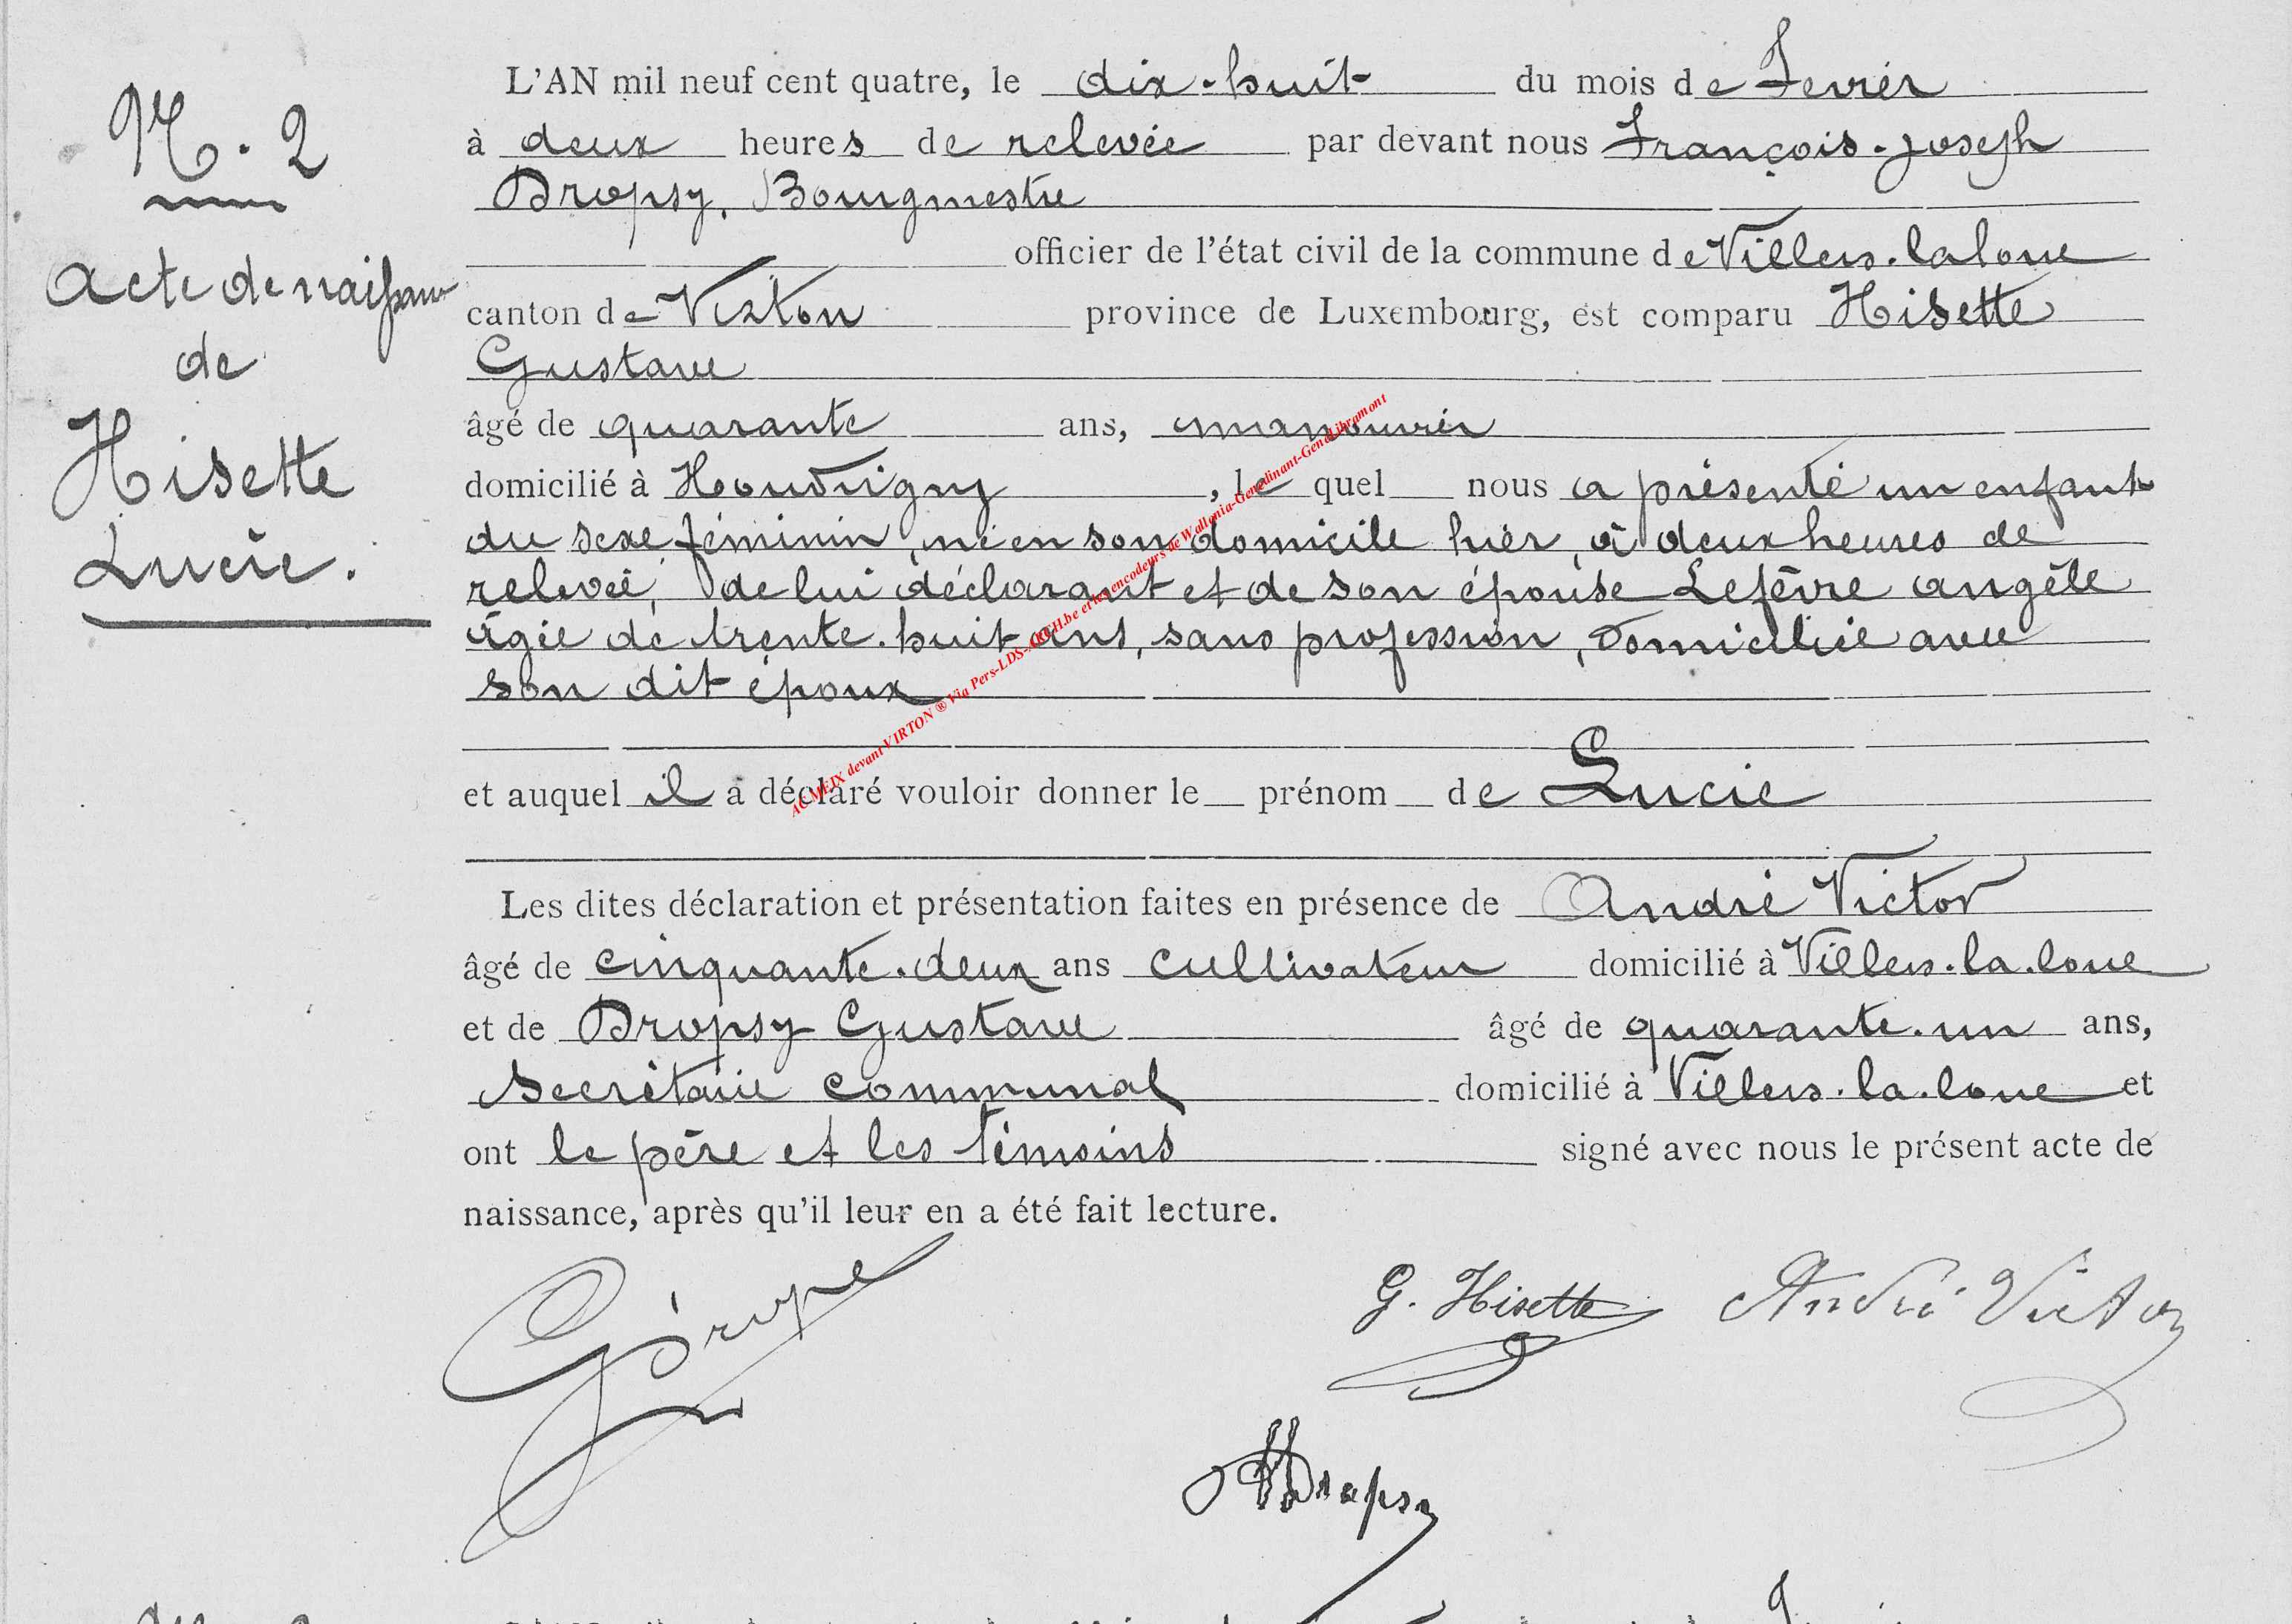 N. 2
Acte de naissance
de
Hisette
Lucie.
L'AN mil neuf cent quatre, le dix-huit du mois de Fevrier
à deux heures de relevée par devant nous François-Joseph
Dropsy, Bourgmestre
officier de l'état civil de la commune de Villers-la loue
canton de Virton province de Luxembourg, est comparu Hisette
Gustave
âgé de quarante ans, manouvrier
domicilié à Houdrigny, le quel nous a présenté un enfant
du sexe féminin, né en son domicile hier, à deux heures de
relevée, de lui déclarant et de son épouse Lefèvre Angèle
âgée de trente-huit ans, sans profession, domiciliée avec
son dit époux
et auquel il a déclaré vouloir donner le prénom de Lucie
Les dites déclaration et présentation faites en présence de André Victor
âgé de cinquante-deux ans cultivateur domicilié à Villers-la-loue
et de Dropsy Gustave âgé de quarante-un ans,
Secrétaire communal domicilié à Villers-la-loue et
ont le père et les témoins signé avec nous le présent acte de
naissance, après qu'il leur en a été fait lecture.
G. Hisette André Victor
Dropsy
AC MEIX devant VIRTON ® Via Pers-LDS-ARCH.be et les encodeurs de Wallonia-Genedinant-GeneLibramont